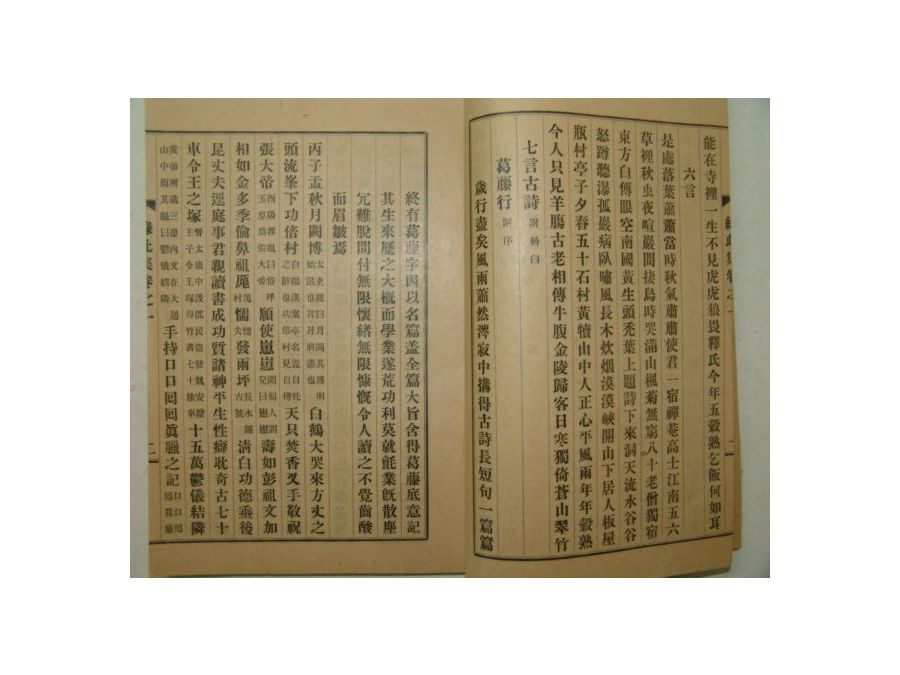 能在寺裡一生不見虎虎狼畏釋氏今年五穀熟乞飯何如耳
六言
是處落葉蕭蕭當時秋氣蕭蕭使君一宿禪菴高士江南五六
草裡秋虫夜喧巖間捿鳥時哭滿山楓菊無窮八十老僧獨宿
東方白傅眼空南國黃生頭禿葉上題詩下來洞天流水谷谷
怒蹲聽瀑孤巖病臥嘯風長木炊烟漠漠峽開山下居人板屋
瓶村亭子夕舂五十石村黃犢山中人正心平風雨年年穀熟
今人只見羊膓古老相傳牛腹金陵歸客日寒獨倚蒼山翠竹
七言古詩 附科白
葛藤行 附序
歲行盡矣風雨蕭然滯寂中搆得古詩長短句一篇篇
終有葛藤字因以名篇盖全篇大旨舍得葛藤底意記
其生來歷之大槪而學業遂荒功利莫就氈業旣散座
冗難脫間付無限懷緖無限慷慨令人讀之不覺齒酸
而眉皺焉
丙子孟秋月闕博 白鶴大哭來方丈之
頭流峯下功倍村 天只焚香叉手敬祝
張大帝 願使崽崽 壽如彭祖文加
相如金多季倫鼻祖 懦 發雨坪 淸白功德垂後
昆丈夫逕庭事君親讀書成功質諸神平生性癖耽奇古七十
車令王之塚 十五萬鬱儀結隣
手持日日囘囘眞臘之記